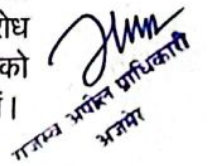 ोध
को
।
राजस्व अपील प्राधिकारी
अजमेर